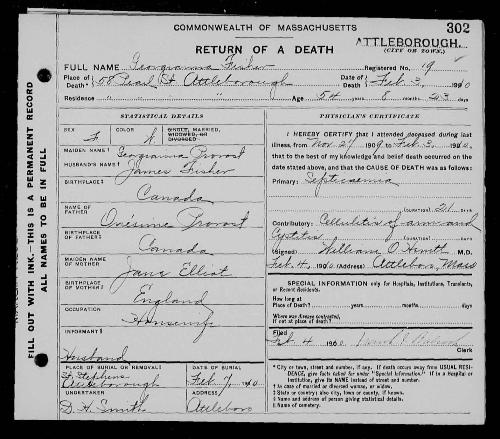 302
COMMONWEALTH OF MASSACHUSETTS
ATTLEBOROUGH.
RETURN OF A DEATH
(CITY OR TOWN.)
FULL NAME Georgianna Fisher Registered No. 19
Place of Death 58 Pearl St Attleborough Date of Death Feb 3, 1910
Residence " " Age 54 years 8 months 23 days
STATISTICAL DETAILS
SEX F COLOR W SINGLE, MARRIED, WIDOWED, OR DIVORCED
MAIDEN NAME Georgianna Provost
HUSBAND'S NAME James Fisher
BIRTHPLACE Canada
NAME OF FATHER Onésime Provost
BIRTHPLACE OF FATHER Canada
MAIDEN NAME OF MOTHER Jane Elliot
BIRTHPLACE OF MOTHER England
OCCUPATION Housewife
INFORMANT Husband
PLACE OF BURIAL OR REMOVAL DATE OF BURIAL
St Stephens
Attleborough Feb 7, 1910
UNDERTAKER ADDRESS
D. H. Smith Attleboro
PHYSICIAN'S CERTIFICATE
I HEREBY CERTIFY that I attended deceased during last
illness, from Nov 27 1909 to Feb 3, 1910,
that to the best of my knowledge and belief death occurred on the
date stated above, and that the CAUSE OF DEATH was as follows:
Primary: Septicaemia
(DURATION) 21 days
Contributory: Cellulitis of arm and
Cystitis (DURATION)
(Signed) William O Hewitt M.D.
Feb. 4, 1910 (Address) Attleboro, Mass
SPECIAL INFORMATION only for Hospitals, Institutions, Transients,
or Recent Residents.
How long at
Place of Death? years months days
Where was disease contracted,
if not at place of death?
Filed Feb 4 1910
Clerk
*City, town, street and number, if any. If death occurs away from USUAL RESI-
DENCE, give facts called for under "Special Information." If in a Hospital or
Institution, give its name instead of street and number.
†In case of married or divorced woman, or widow.
‡State or country; also city, town or county, if known.
§Name and address of person giving statistical details.
‖Name of cemetery.
FILL OUT WITH INK.—THIS IS A PERMANENT RECORD
ALL NAMES TO BE IN FULL